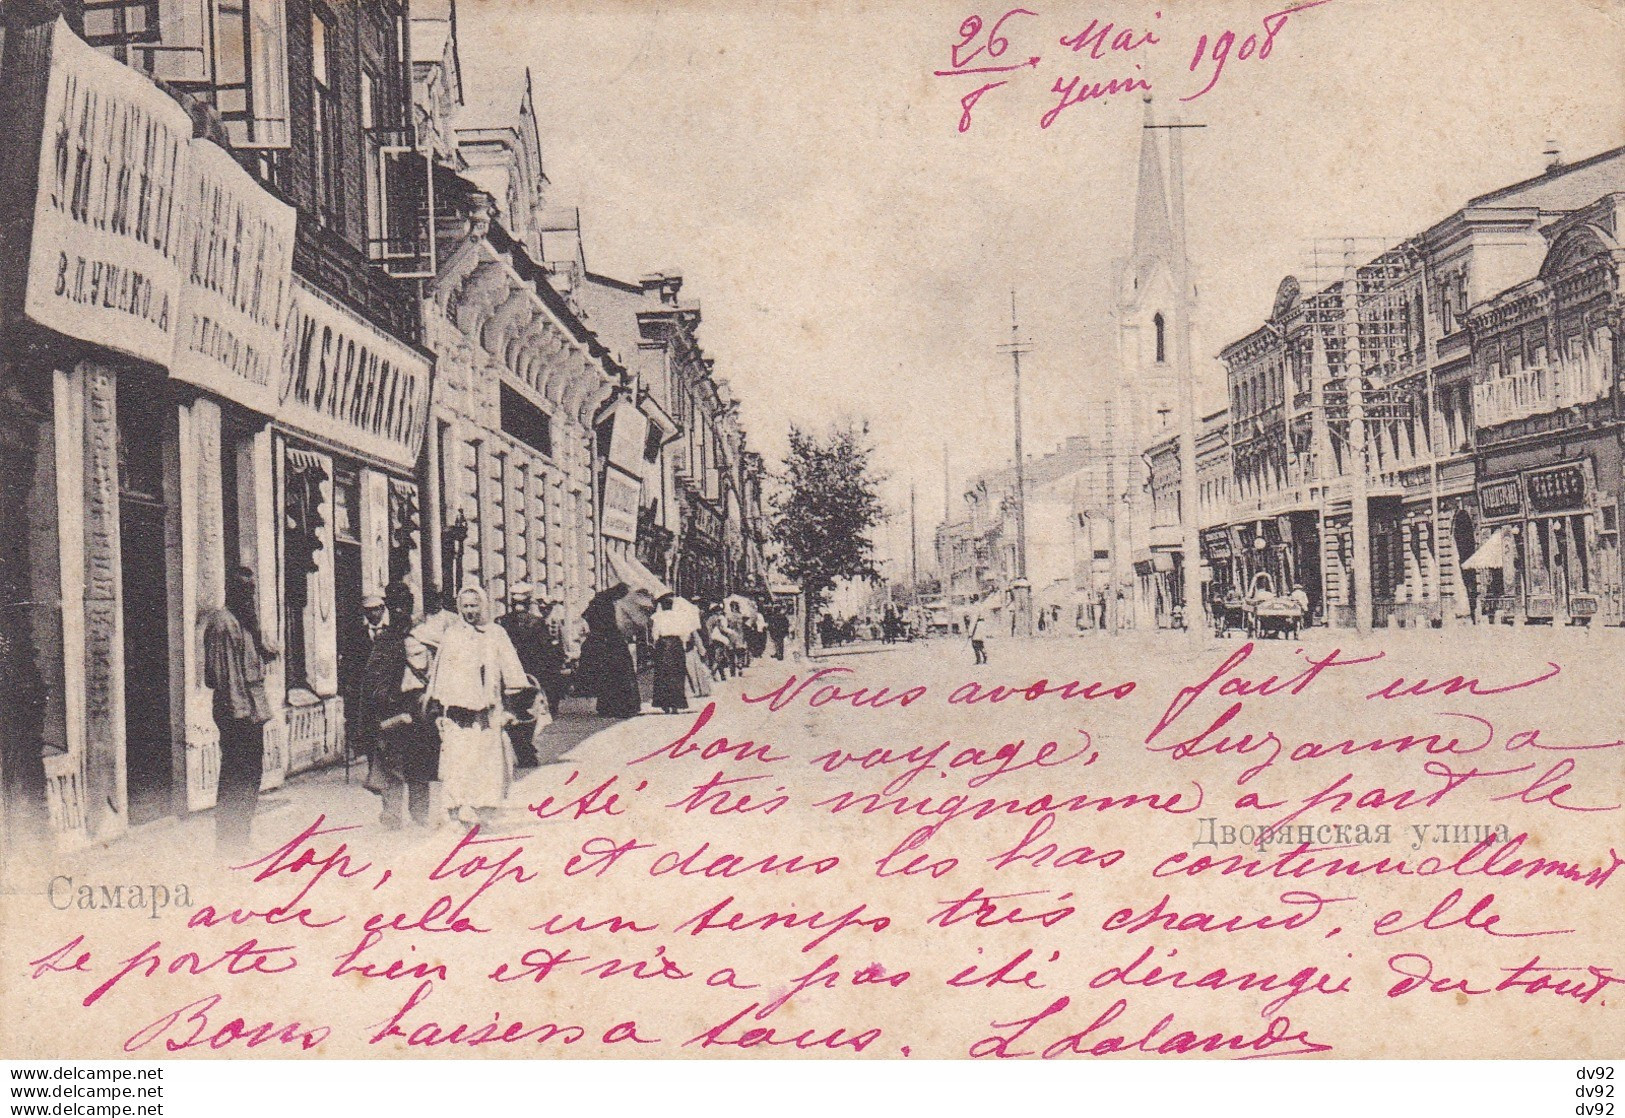 26 Mai 1908
8 Juin
В.П.УШАКО
М.БАРАННИКОВЪ
Nous avons fait un
bon voyage, Suzanne a
été très mignonne a part le
Дворянская улица
top, top et dans les bras continuellement
Самара
avec cela un temps très chaud, elle
se porte bien et n'a pas été dérangée du tout.
Bons baisers a tous. L Lalande
www.delcampe.net
www.delcampe.net
www.delcampe.net
dv92
dv92
dv92